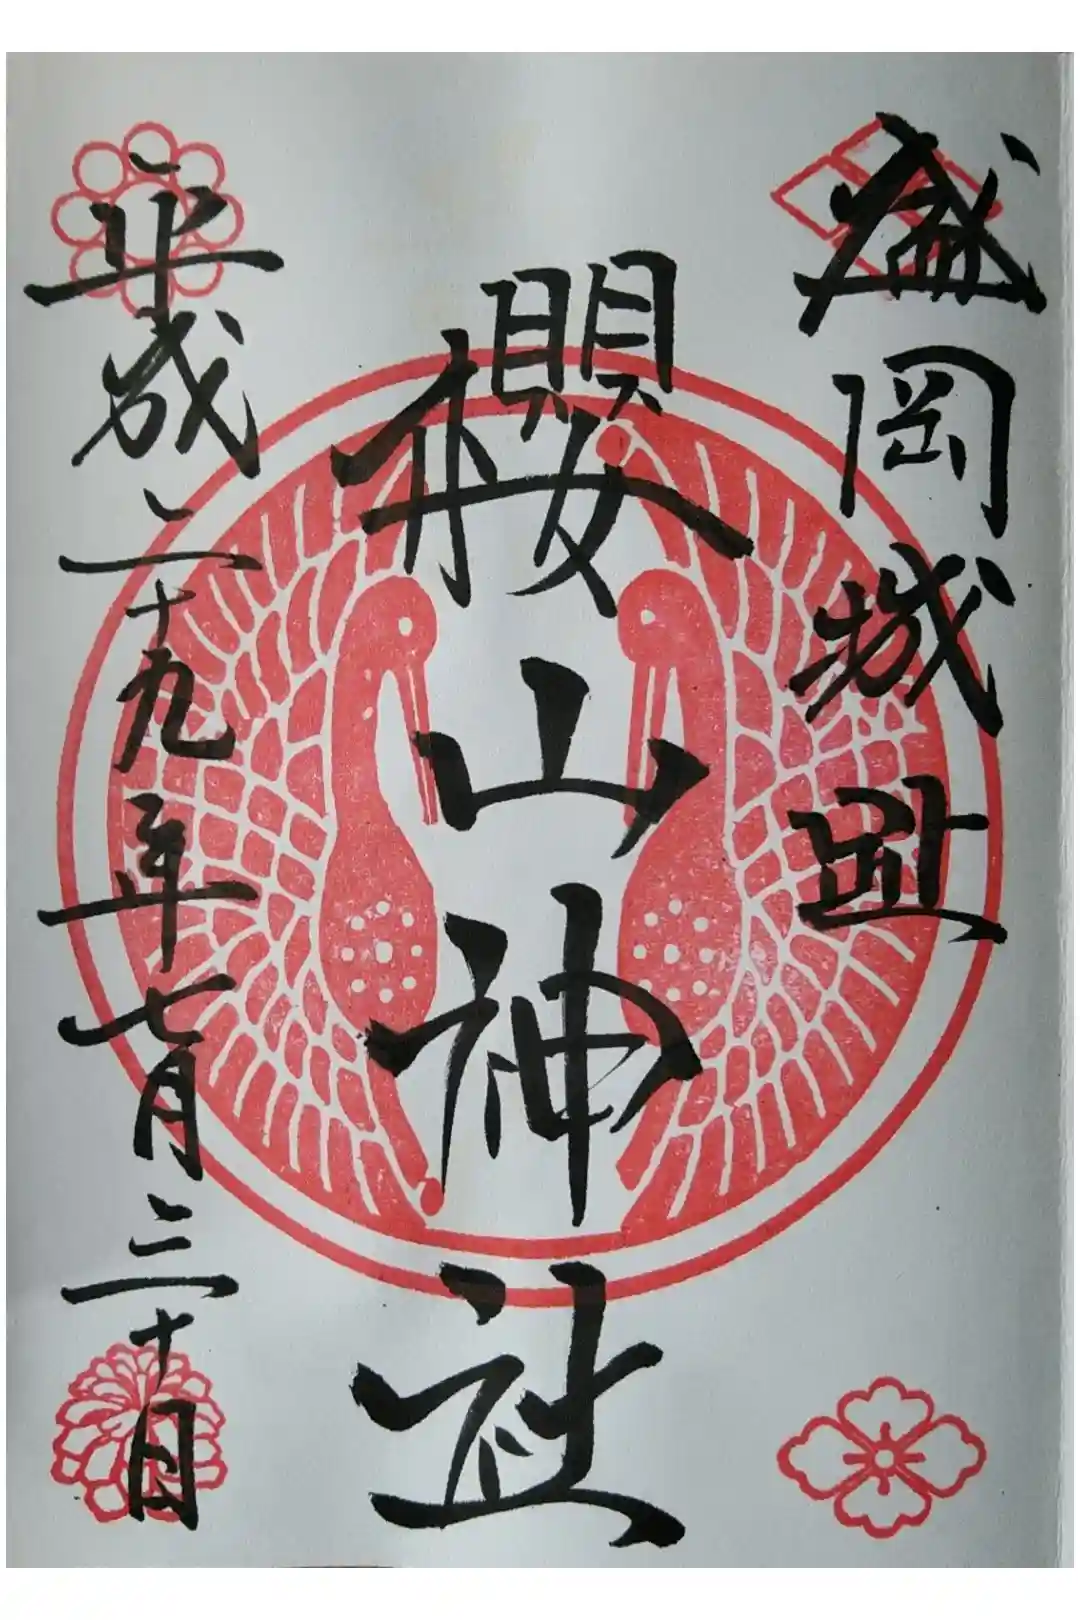 盛岡城趾
櫻山神社
平成二十九年七月三十日